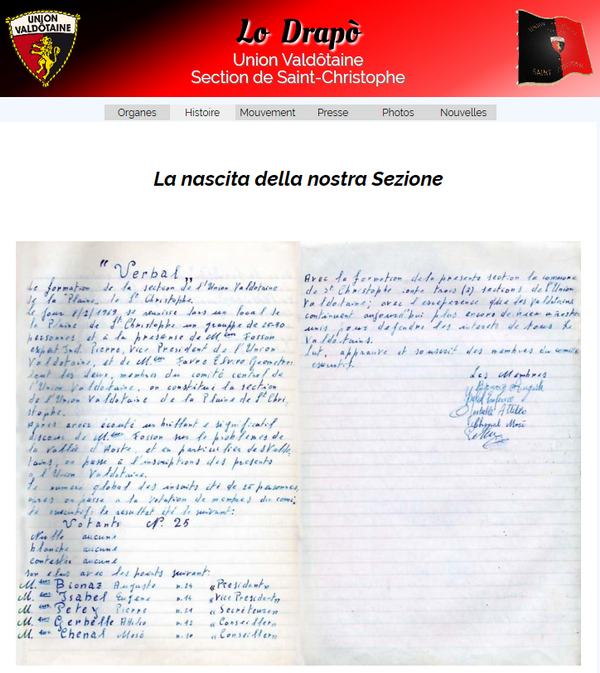 UNION
VALDÔTAINE
Lo Drapò
Union Valdôtaine
Section de Saint-Christophe
UNION VALDÔTAINE
SAINT
Organes
Histoire
Mouvement
Presse
Photos
Nouvelles
La nascita della nostra Sezione
"Verbal"
Le formation de la section de l'Union Valdotaine
de la Plaine, de St Christophe.
Le jour 1/2/1969 se reunisse dans un local de
la Plaine de St Christophe un groupe de 20-30
personnes, et à la presense de M. Fosson
expert Ind. Pierre, Vice President de l'Union
Valdotaine, et de M. Favre Geometres
sont des deux, membres du comité central de
l'Union Valdotaine, on constitue la section
de l'Union Valdotaine de la Plaine de St Chri,
stophe.
Après avoir écouté un brillant e significatif
discour de M. Fosson sur le problèmes de
la Vallée d'Aoste, et en particulier des Valdo,
tains, on passe à l'inscriptions des presents
a l'Union Valdotaine.
Le numero global des inscrits été de 25 personnes,
on passe a la votation de membres du comi,
te executif, le resultat été le suivant:
Votants N. 25
Nulle aucune
blanche aucune
contester aucune
son elus avec les points suivant:
M. Bionaz Auguste n. 24 "President"
M. Isabel Eugene "Vice President"
M. Petey Pierre
M. Gerbelle Attilio n. 12 "Conseiller"
M. Chenal Mosè n. 10 "Conseiller"
Avec la formation de la presente section la commune
de St Christophe conte trois (3) sections de l'Union
Valdotaine; avec l' que des Valdotains
continuent aujourd'hui plus encore de
unis pour defendre les interets de tous les
Valdotains.
Lut, approuvé et souscrit des membres du comité
executif.
Les Membres
Bionaz Auguste
Isabel Eugene
Gerbelle Attilio
Chenal Mosè